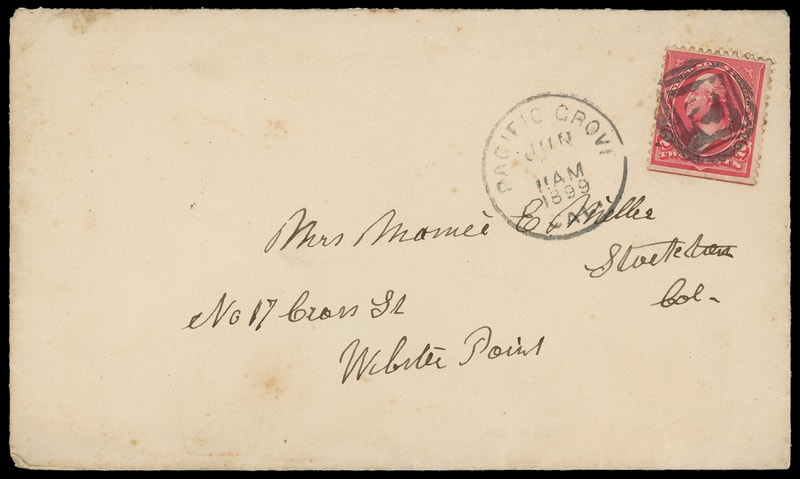 PACIFIC GROVE
JUN
11AM
1899
TWO CENTS
Mrs Mamie E. Miller
Stockton
Cal-
No 17 Cross St
Webster Point